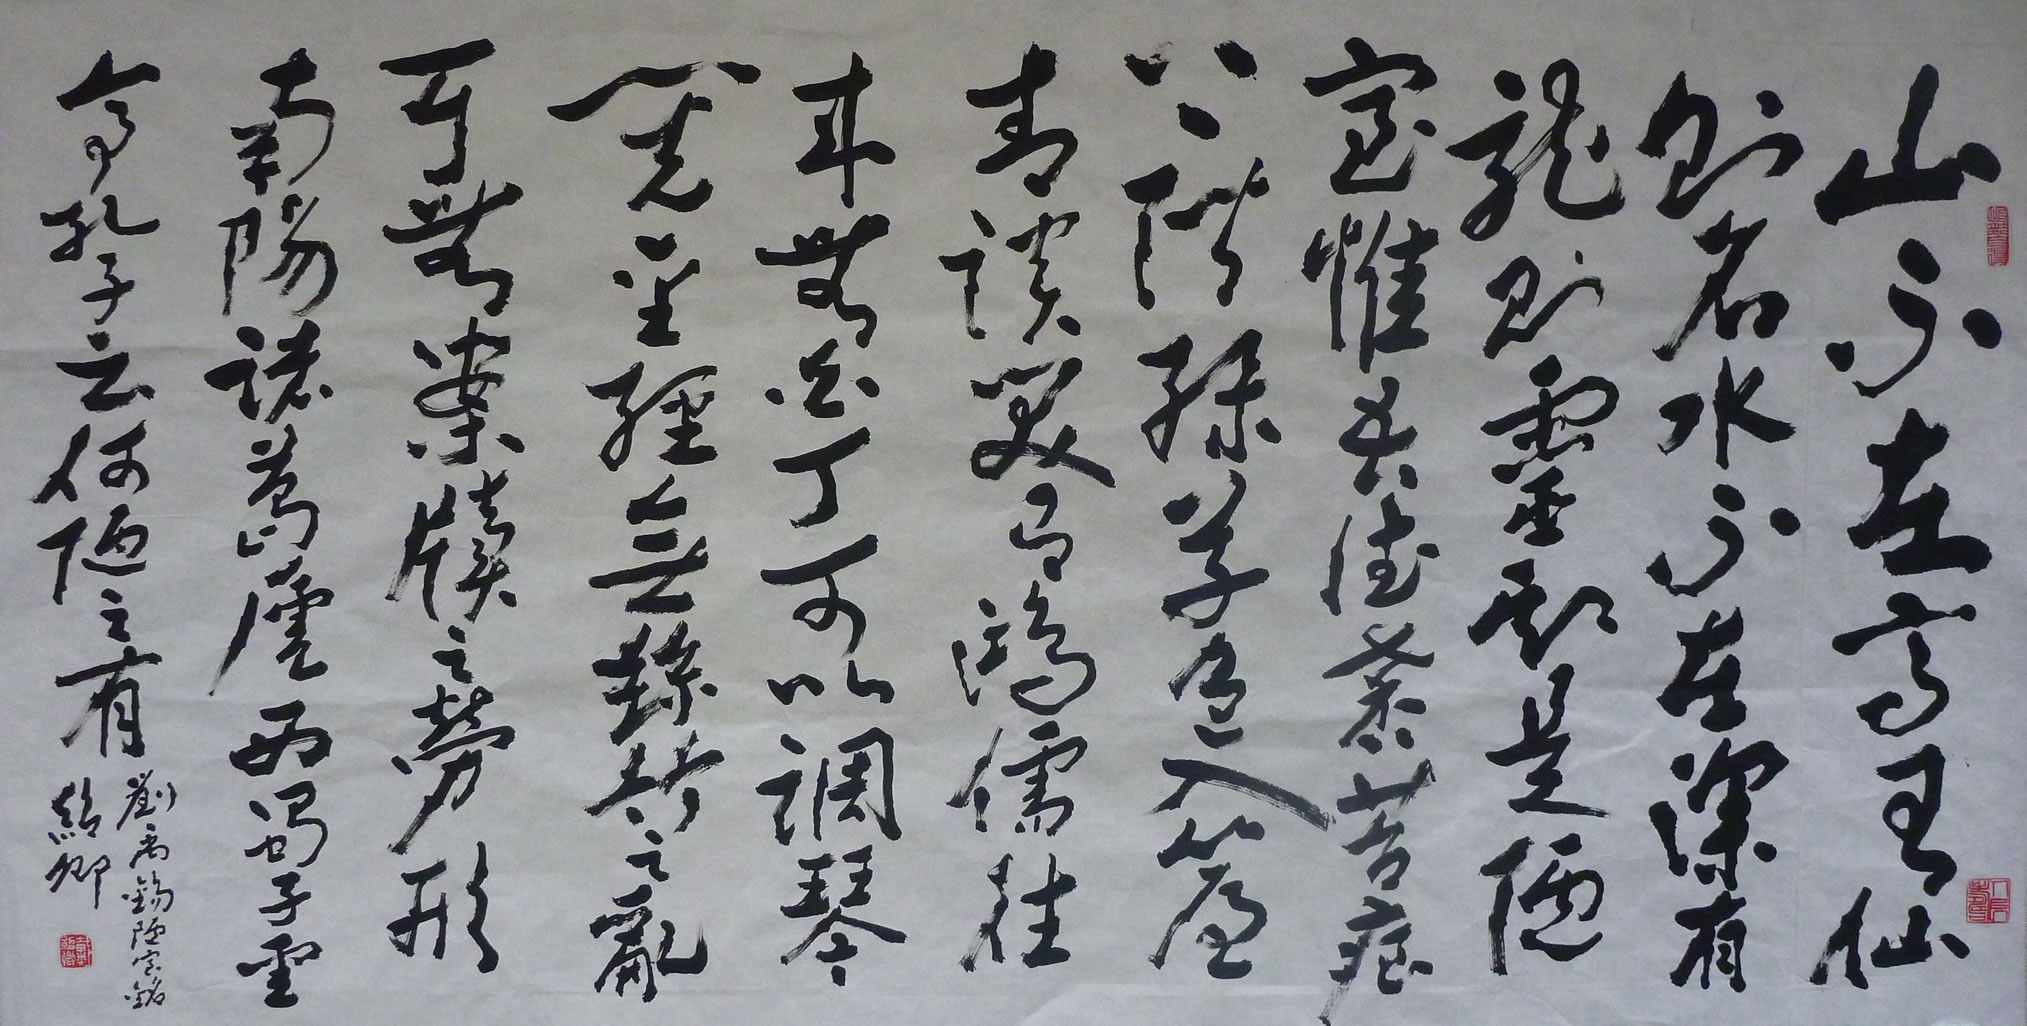 山不在高有仙
則名水不在深有
龍則靈斯是陋
室惟吾德馨苔痕
上階綠草色入簾
青談笑有鴻儒往
來無白丁可以調琴
閱金經無絲竹之亂
耳無案牘之勞形
南陽諸葛廬西蜀子雲
亭孔子云何陋之有
劉禹錫陋室銘
紹卿